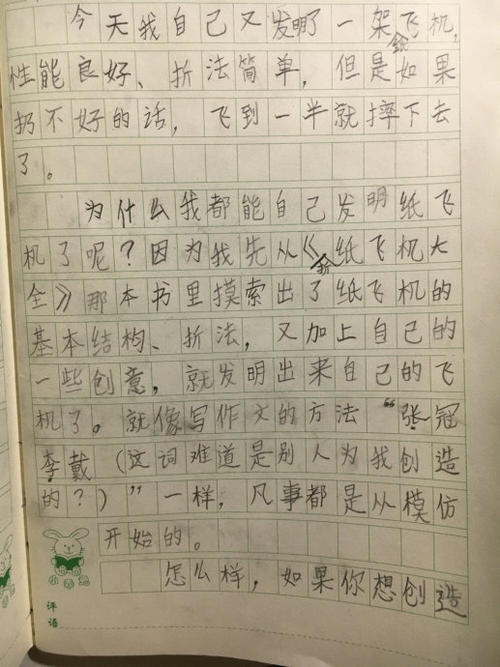 今天我自己又发明了一架纸飞机,
性能良好、折法简单,但是如果
扔不好的话,飞到一半就摔下去
了。
为什么我都能自己发明纸飞
机了呢?因为我先从《折纸飞机大
全》那本书里摸索出了纸飞机的
基本结构、折法,又加上自己的
一些创意,就发明出来自己的飞
机了。就像写作文的方法“张冠
李戴(这词难道是别人为我创造
的?)”一样,凡事都是从模仿
开始的。
怎么样,如果你想创造
评语